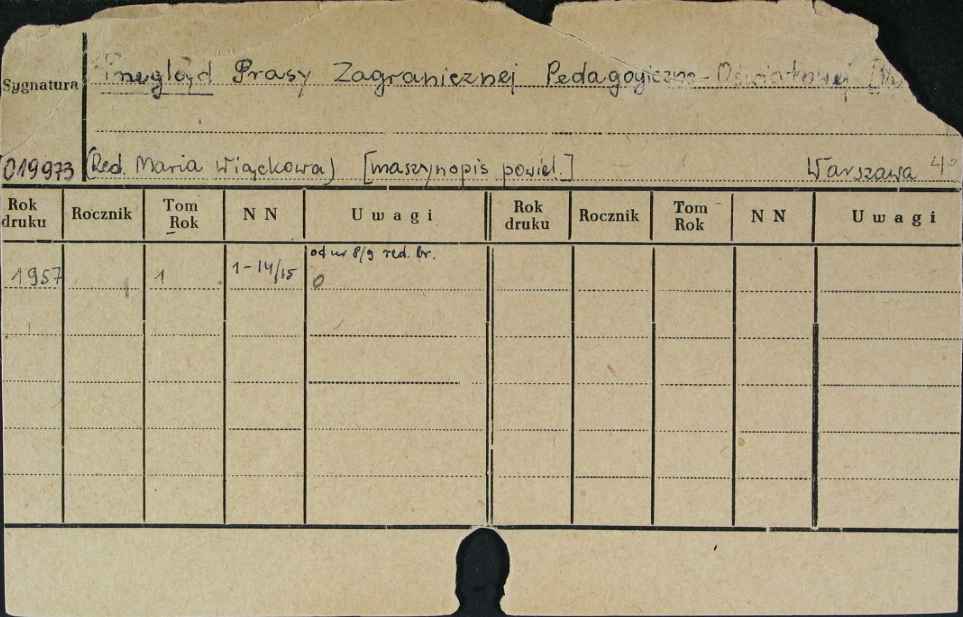 Sygnatura Przegląd Prasy Zagranicznej Pedagogiczno-Oświatowej
019973 (Red. Maria Wiąckowa) [maszynopis powiel.] Warszawa 4°
Rok druku Rocznik Tom Rok NN Uwagi Rok druku Rocznik Tom Rok NN Uwagi
od nr 8/9 red. br.
1957 1 1-14/15 0